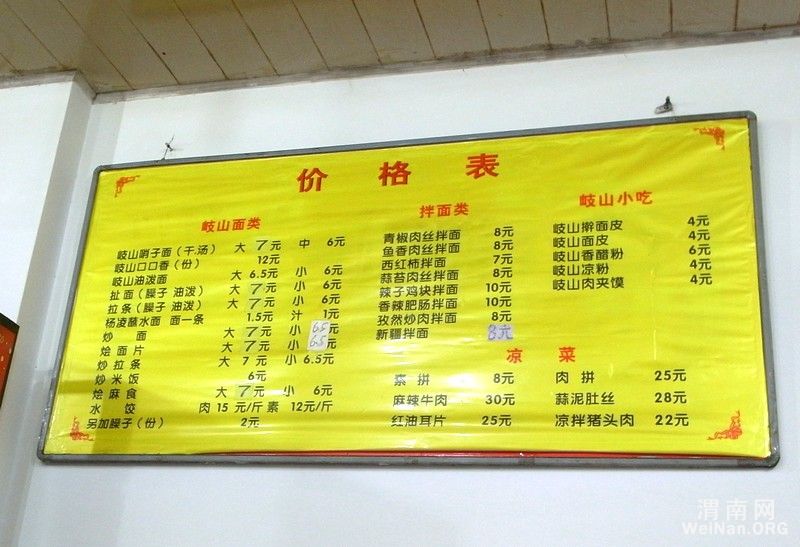 价格表
岐山面类
岐山哨子面(干.汤) 大 7元 中 6元
岐山口口香(份) 12元
岐山油泼面 大 6.5元 小 6元
扯面(臊子 油泼) 大 7元 小 6元
拉条(臊子 油泼) 大 7元 小 6元
杨凌蘸水面 面一条 1.5元 汁 1元
炒面 大 7元 小 6.5元
烩面片 大 7元 小 6.5元
炒拉条 大 7元 小 6.5元
炒米饭 6元
烩麻食 大 7元 小 6元
水饺 肉 15元/斤 素 12元/斤
另加臊子(份) 2元
拌面类
青椒肉丝拌面 8元
鱼香肉丝拌面 8元
西红柿拌面 7元
蒜苔肉丝拌面 8元
辣子鸡块拌面 10元
香辣肥肠拌面 10元
孜然炒肉拌面 8元
新疆拌面 8元
岐山小吃
岐山擀面皮 4元
岐山面皮 4元
岐山香醋粉 6元
岐山凉粉 4元
岐山肉夹馍 4元
凉菜
素拼 8元 肉拼 25元
麻辣牛肉 30元 蒜泥肚丝 28元
红油耳片 25元 凉拌猪头肉 22元
渭南网
WeiNan.ORG